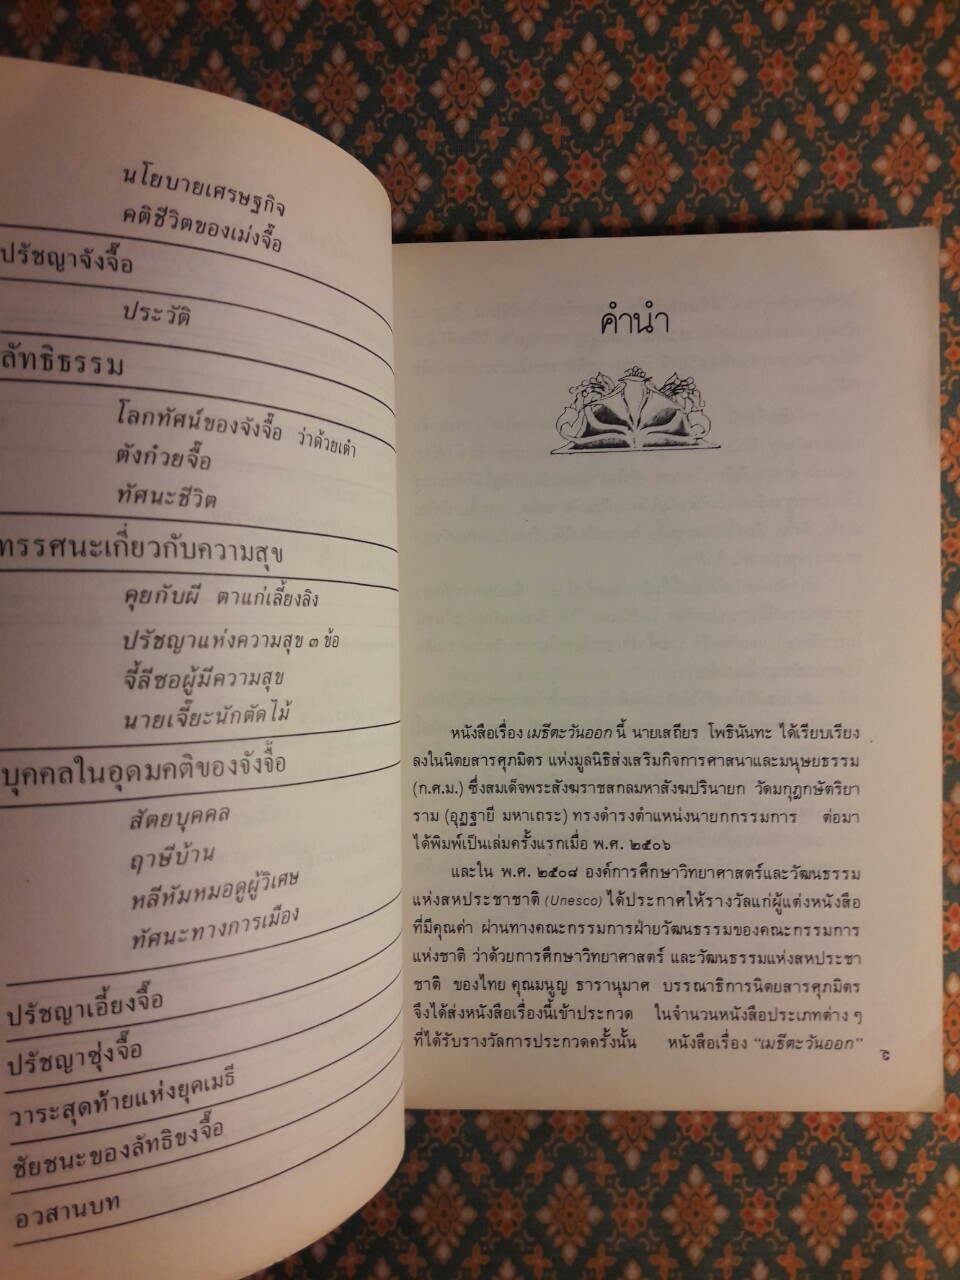 นโยบายเศรษฐกิจ
คติชีวิตของเม่งจื๊อ
ปรัชญาจังจื๊อ
ประวัติ
ลัทธิธรรม
โลกทัศน์ของจังจื๊อ ว่าด้วยเต๋า
ตังก๋วยจื๊อ
ทัศนะชีวิต
ทรรศนะเกี่ยวกับความสุข
คุยกับผี ตาแก่เลี้ยงลิง
ปรัชญาแห่งความสุข ๓ ข้อ
จี้ลีซอผู้มีความสุข
นายเจี๊ยะนักตัดไม้
บุคคลในอุดมคติของจังจื๊อ
สัตยบุคคล
ฤาษีบ้าน
หลีหัมหมอดูผู้วิเศษ
ทัศนะทางการเมือง
ปรัชญาเอี้ยงจื๊อ
ปรัชญาซุ่งจื๊อ
วาระสุดท้ายแห่งยุคเมธี
ชัยชนะของลัทธิขงจื๊อ
อวสานบท
คำนำ
หนังสือเรื่อง เมธีตะวันออก นี้ นายเสถียร โพธินันทะ ได้เรียบเรียง
ลงในนิตยสารศุภมิตร แห่งมูลนิธิส่งเสริมกิจการศาสนาและมนุษยธรรม
(ก.ศ.ม.) ซึ่งสมเด็จพระสังฆราชสกลมหาสังฆปรินายก วัดมกุฎกษัตริยา
ราม (อุฏฐายี มหาเถระ) ทรงดำรงตำแหน่งนายกกรรมการ ต่อมา
ได้พิมพ์เป็นเล่มครั้งแรกเมื่อ พ.ศ. ๒๕๐๖
และใน พ.ศ. ๒๕๐๘ องค์การศึกษาวิทยาศาสตร์และวัฒนธรรม
แห่งสหประชาชาติ (Unesco) ได้ประกาศให้รางวัลแก่ผู้แต่งหนังสือ
ที่มีคุณค่า ผ่านทางคณะกรรมการฝ่ายวัฒนธรรมของคณะกรรมการ
แห่งชาติ ว่าด้วยการศึกษาวิทยาศาสตร์ และวัฒนธรรมแห่งสหประชา
ชาติ ของไทย คุณมนูญ ธารานุมาศ บรรณาธิการนิตยสารศุภมิตร
จึงได้ส่งหนังสือเรื่องนี้เข้าประกวด ในจำนวนหนังสือประเภทต่าง ๆ
ที่ได้รับรางวัลการประกวดครั้งนั้น หนังสือเรื่อง "เมธีตะวันออก"